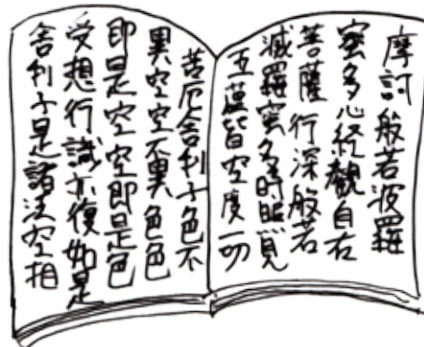 摩訶般若波羅
蜜多心経觀自在
菩薩行深般若
減羅蜜多時照見
五蘊皆空度一切
苦厄舎利子色不
異空空不異色色
即是空空即是色
受想行識亦復如是
舎利子是諸法空相